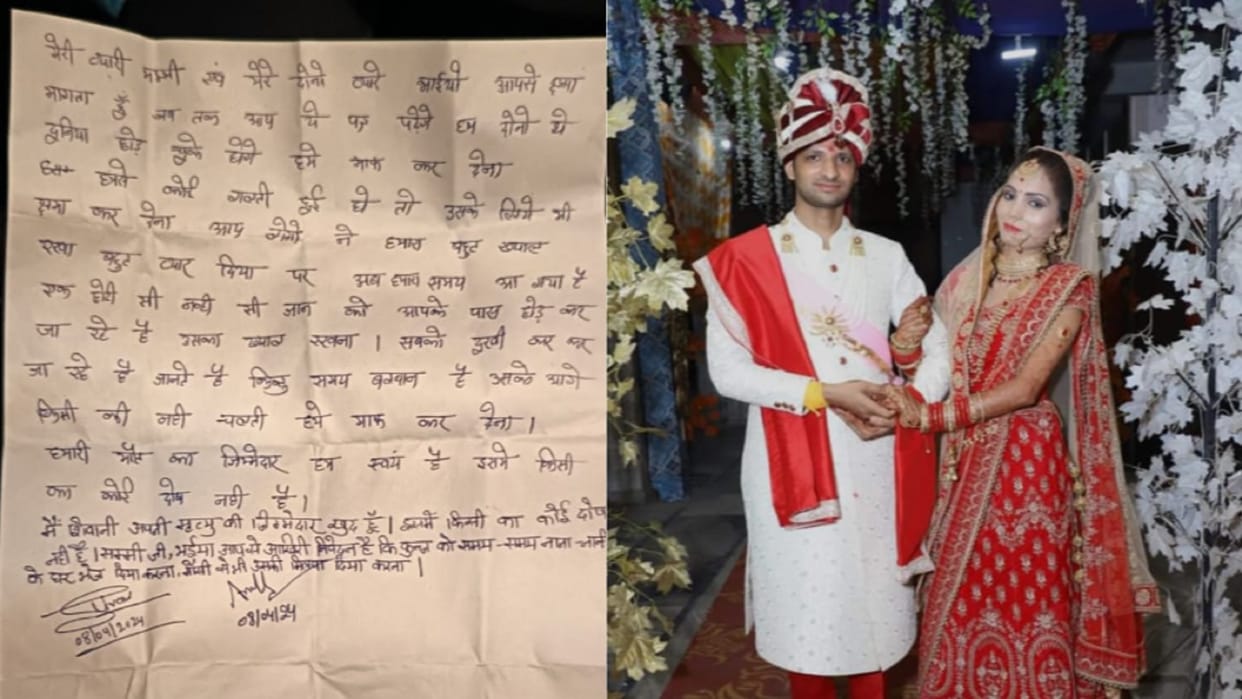 मेरी प्यारी मम्मी एवं मेरे दोनो प्यारे भाईयो आपसे क्षमा
मागता हूँ जब तक आप ये पत्र पढ़ेगे हम दोनो ये
दुनिया छोड़ चुके होंगे हमे माफ कर देना
हमसे कोई गलती हुई हो तो उसके लिये भी
क्षमा कर देना आप लोगो ने हमारा बहुत ख्याल
रखा बहुत प्यार दिया पर अब हमारा समय आ गया है
एक छोटी सी नन्ही सी जान को आपके पास छोड़ कर
जा रहे है उसका ख्याल रखना । सबको दुखी कर कर
जा रहे है जानते है किन्तु समय बलवान है उसके आगे
किसी की नही चलती हमे माफ कर देना ।
हमारी मौत का जिम्मेदार हम स्वयं है इसमे किसी
का कोई दोष नही है ।
मैं शिवानी अपनी मृत्यु की जिम्मेदार खुद हूँ । इसमें किसी का कोई दोष
नहीं है । मम्मी जी, भईया आप से आखिरी निवेदन है कि को समय-समय नाना-नानी
के घर भेज दिया करना, मौसी से भी उसको मिलवा दिया करना ।
08/04/2024
08/04/24